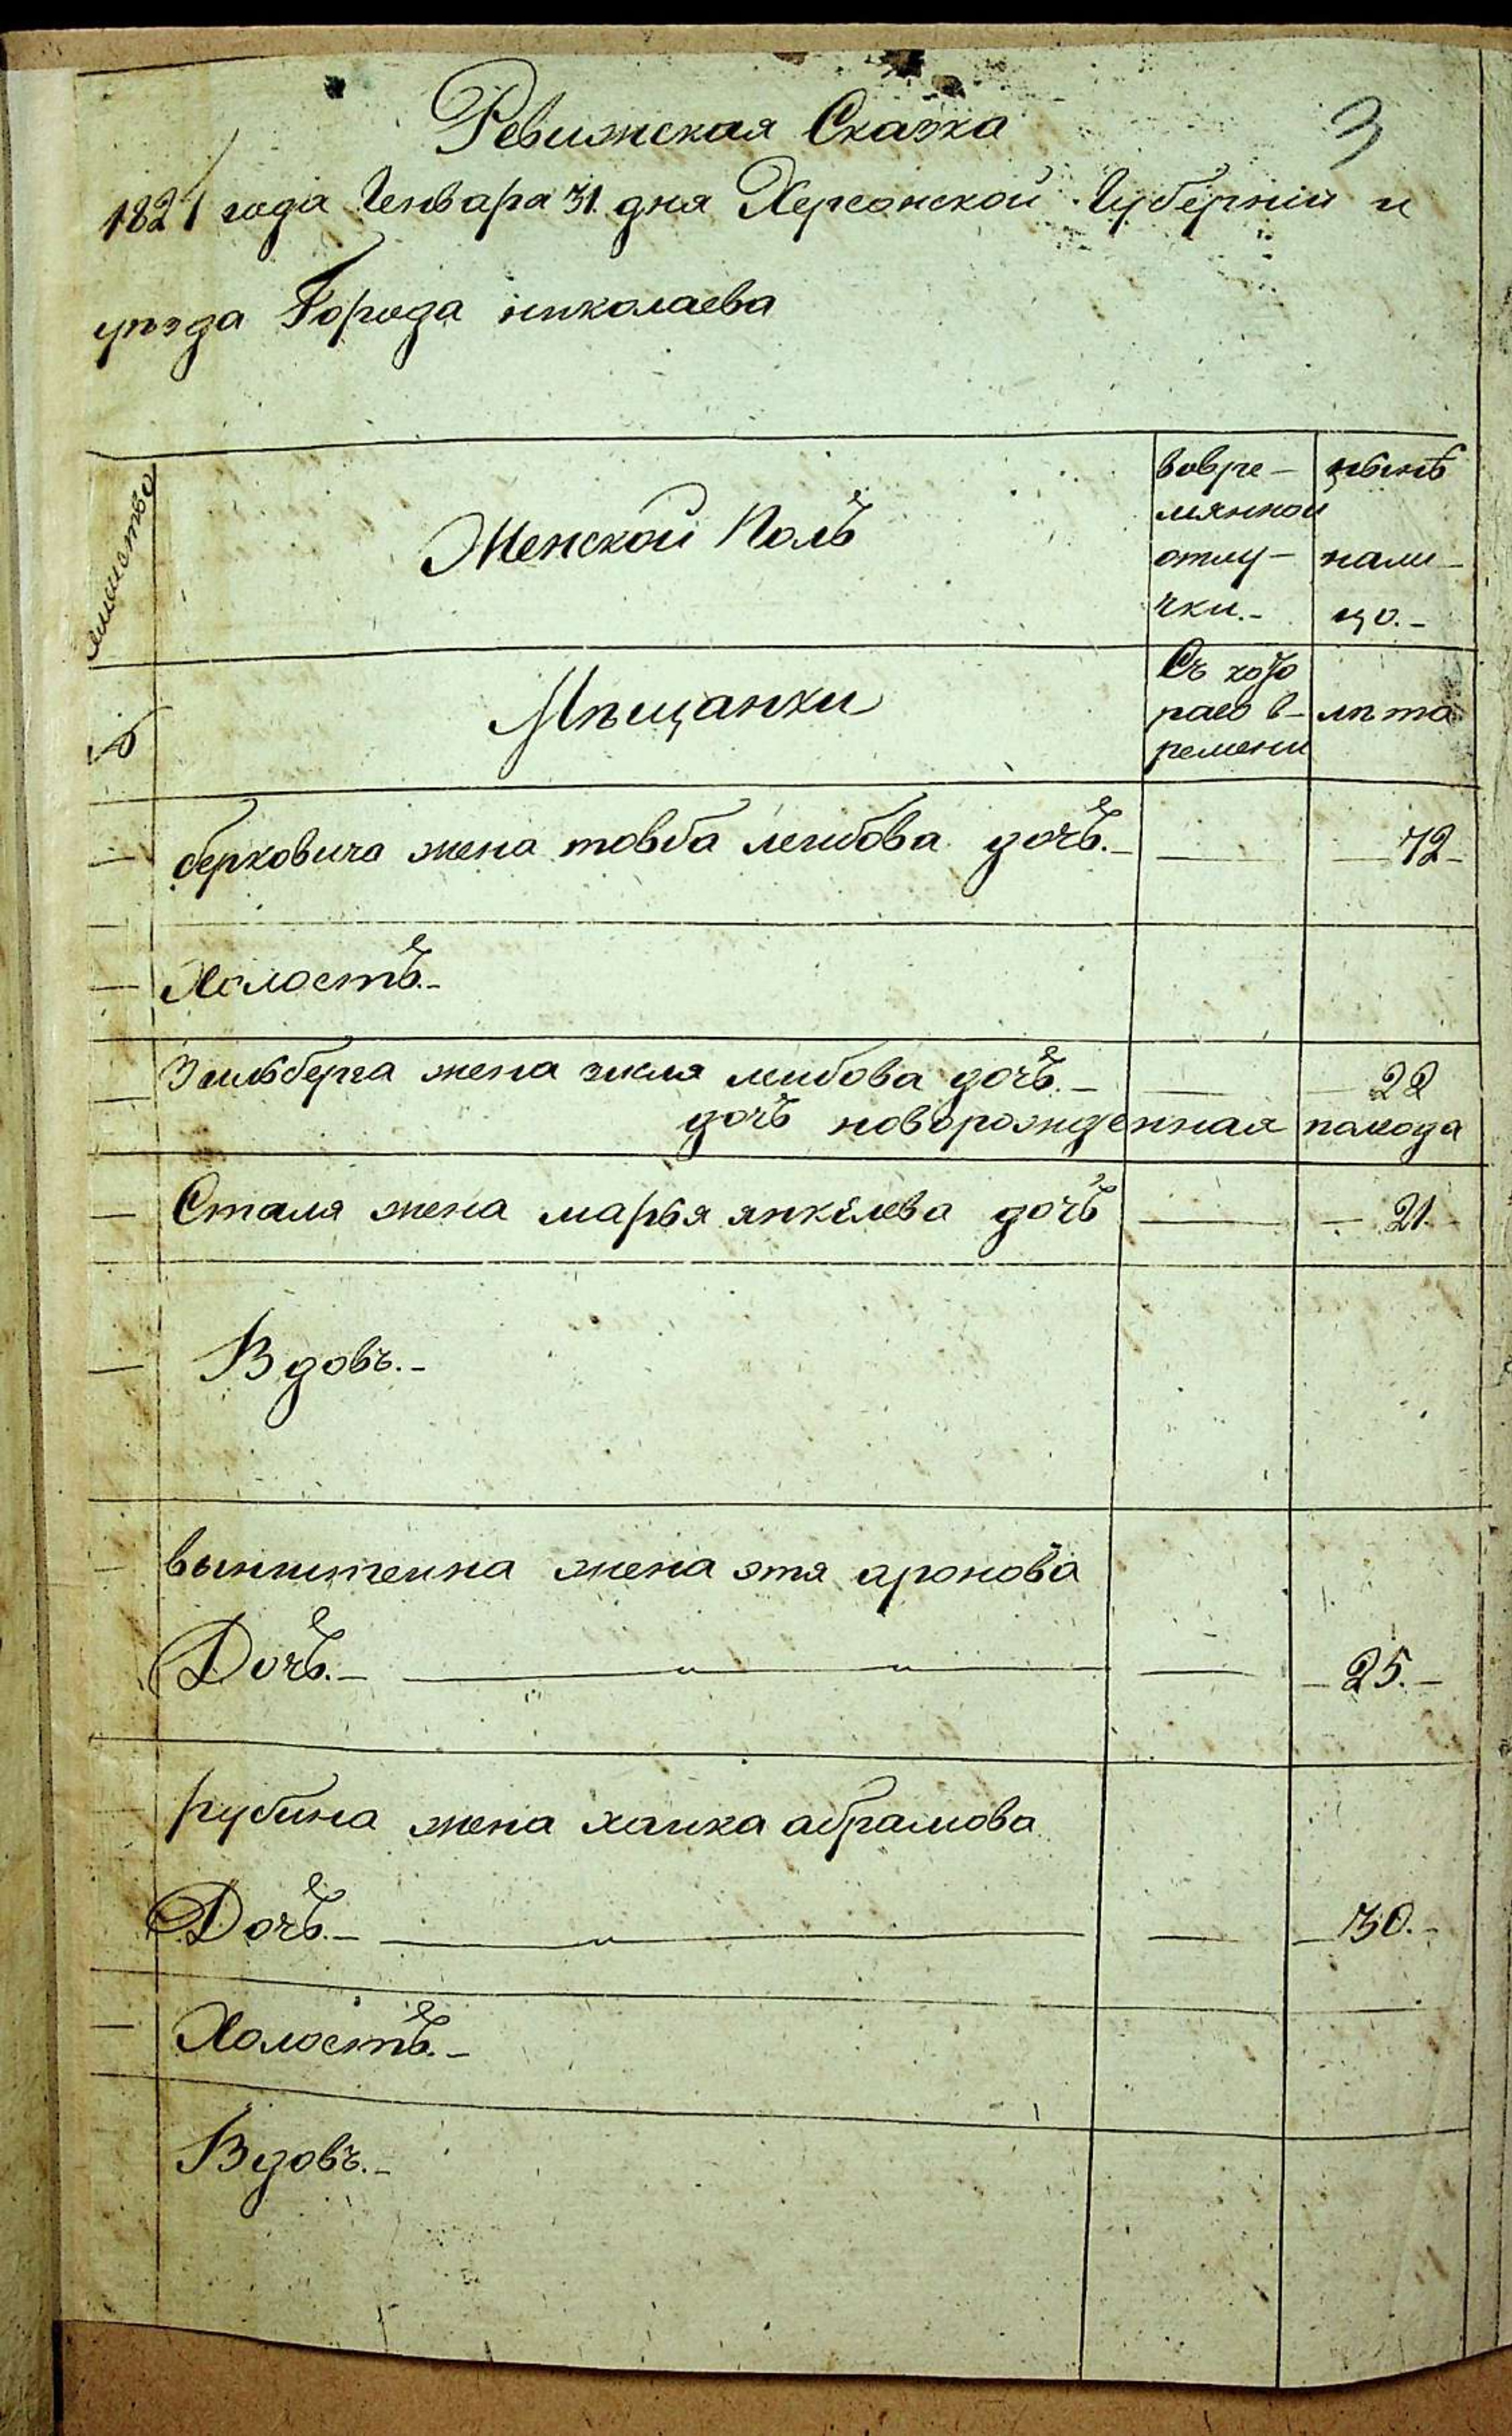 3
Ревижская Сказка
1821 года Генваря 31. дня Херсонской Губернiи и
уѣзда Города николаева
Женской Полъ
вовре-
мянной
отлу-
чки.-
нынѣ
нали-
цо.-
Мѣщанки
Съ кото
раго в-
ремени
лѣта
берковича жена товба леибова дочь.- — 72-
Холостъ.-
Зильберга жена зисля леибова дочь.- — 22
дочь новорожденная полгода
Сталя жена марья янкелева дочь — 21.
Вдовъ.-
вынштеина жена этя аронова
Дочь.- — 25.-
рубина жена хаика абрамова
Дочь.- — 30.-
Холостъ.-
Вдовъ.-